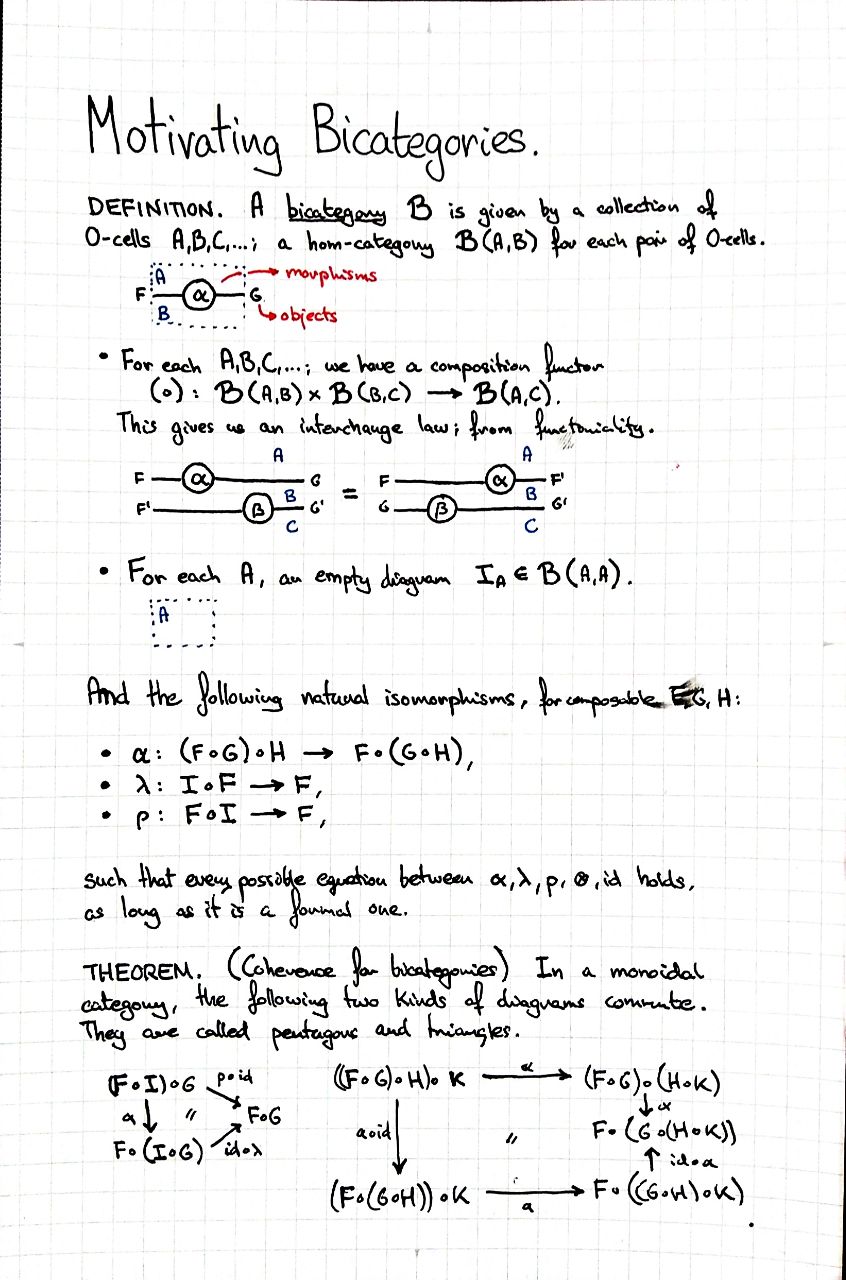 Motivating Bicategories.
DEFINITION. A bicategory B is given by a collection of
0-cells A,B,C,...; a hom-category B(A,B) for each pair of 0-cells.
A → morphisms
F α G
B → objects
• For each A,B,C,...; we have a composition functor
(∘): B(A,B) × B(B,C) → B(A,C).
This gives us an interchange law; from functoriality.
A A
F α G F α F'
B = B
F' β G' G β G'
C C
• For each A, an empty diagram I_A ∈ B(A,A).
A
And the following natural isomorphisms, for composable F,G,H:
• α: (F∘G)∘H → F∘(G∘H),
• λ: I∘F → F,
• ρ: F∘I → F,
such that every possible equation between α,λ,ρ,⊗,id holds,
as long as it is a formal one.
THEOREM. (Coherence for bicategories) In a monoidal
category, the following two kinds of diagrams commute.
They are called pentagons and triangles.
(F∘I)∘G ρ∘id ((F∘G)∘H)∘K α → (F∘G)∘(H∘K)
α ↓ " F∘G ↓ α
a∘id " F∘(G∘(H∘K))
F∘(I∘G) id∘λ ↑ id∘a
(F∘(G∘H))∘K a → F∘((G∘H)∘K)
.